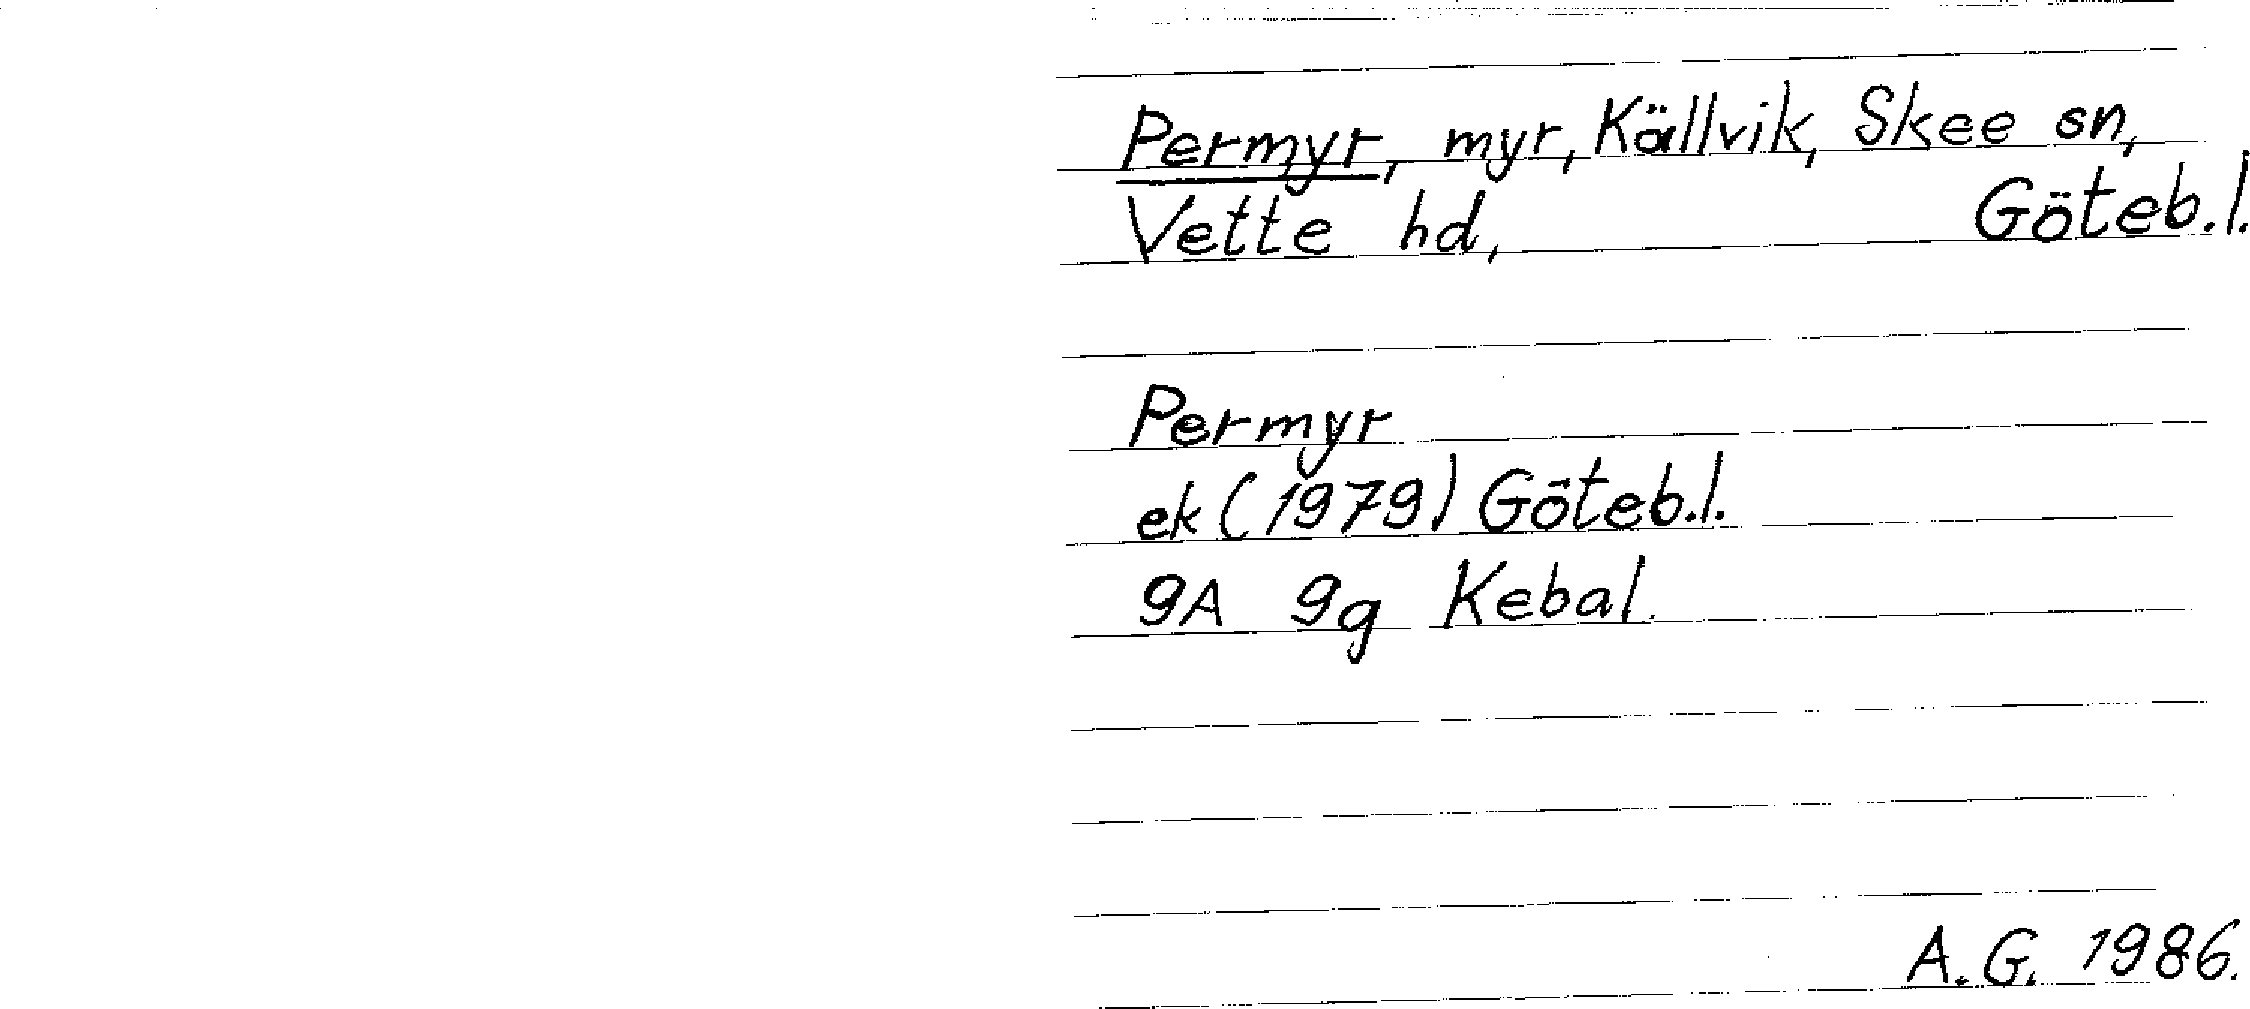 Permyr, myr, Källvik, Skee sn,
Vette hd, Göteb.l.
Permyr
ek (1979) Göteb.l.
9A 9g Kebal.
A.G. 1986.